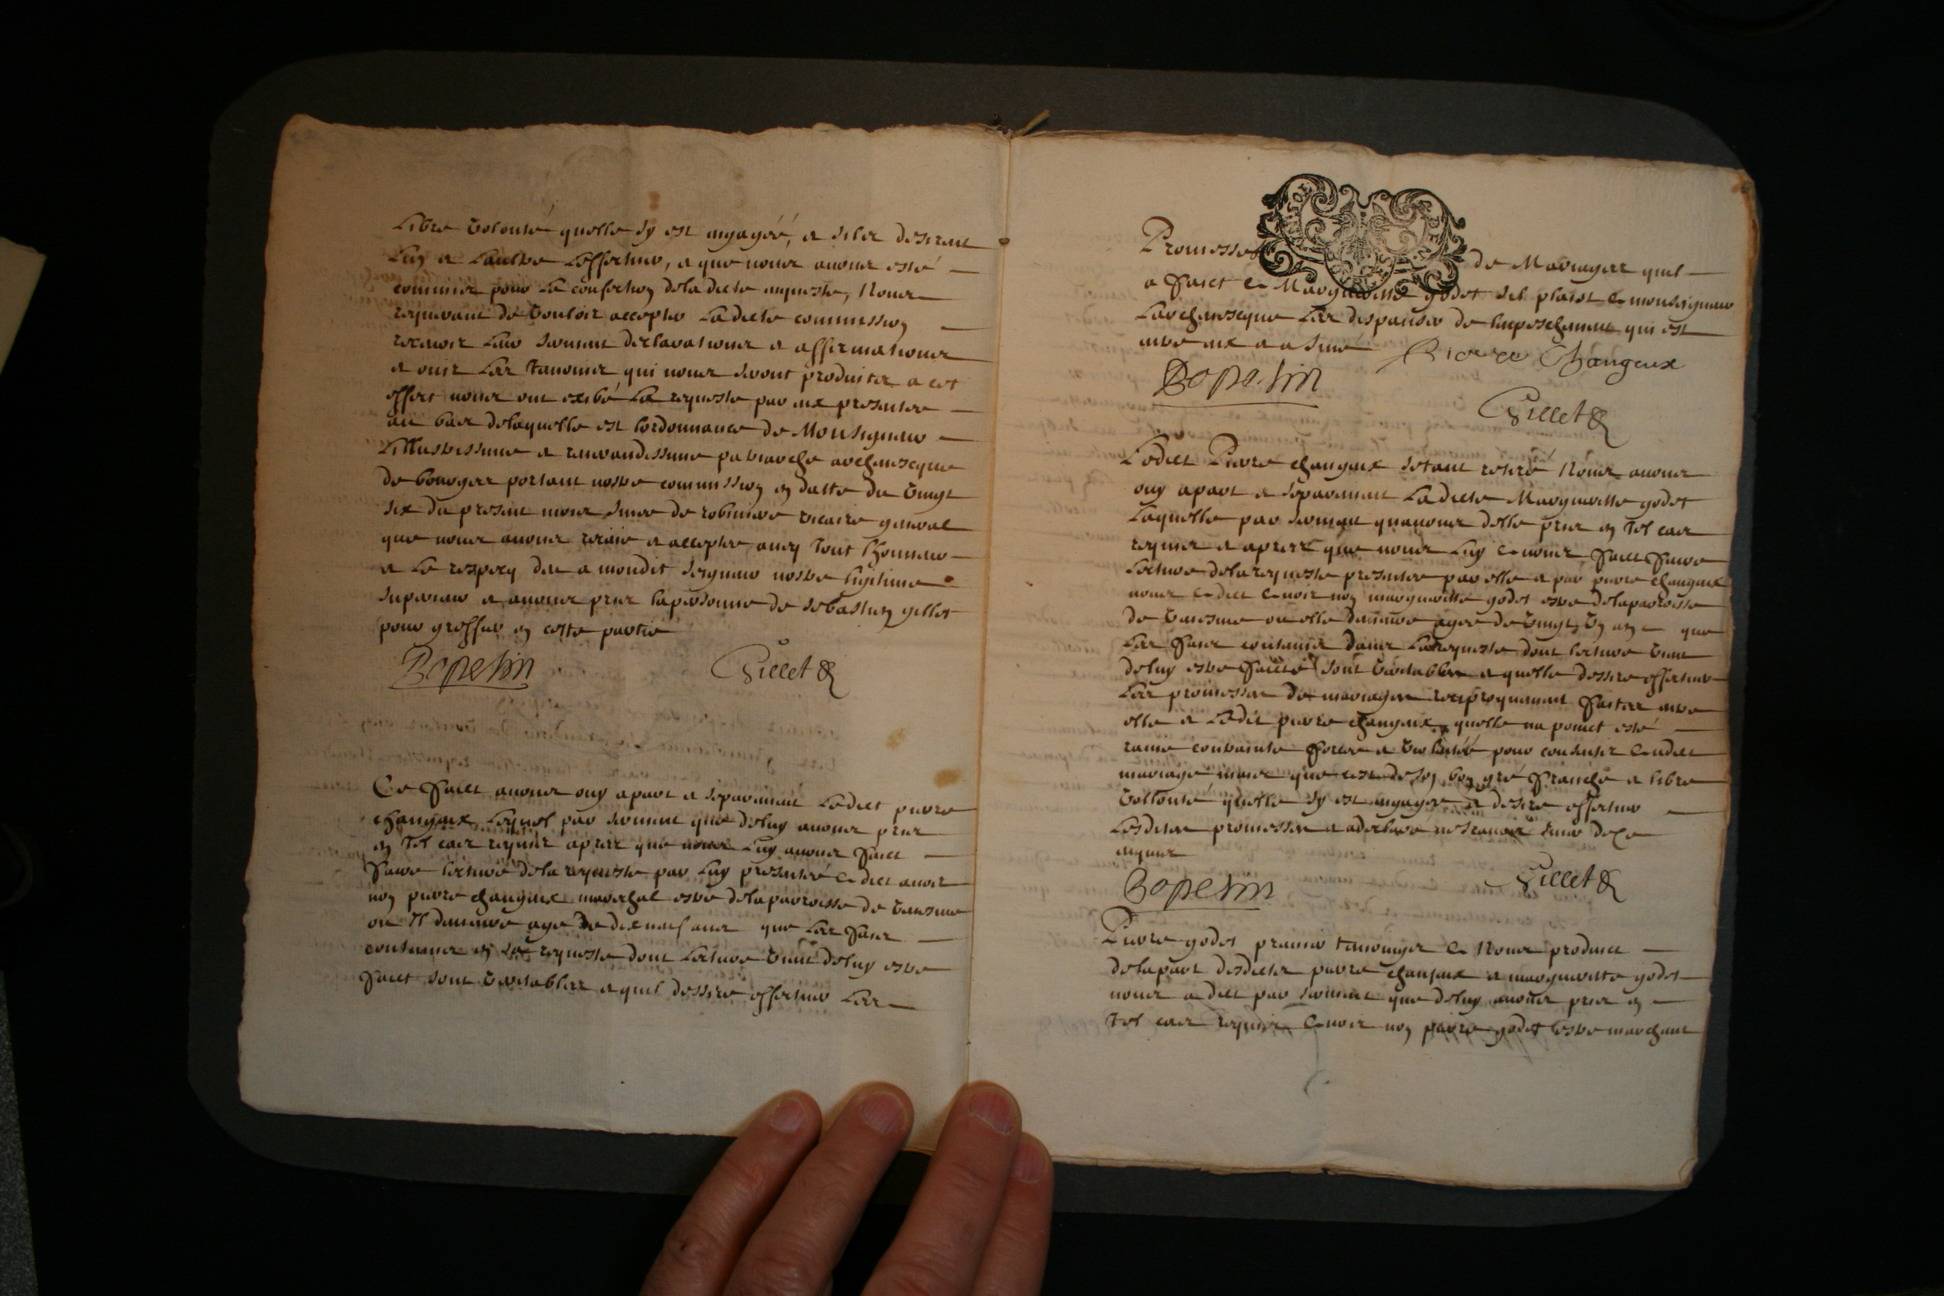 Libre volonté quelle sy est engagéé, et silz desirent
Luy et Laultre Leffectuer, et que nous avons esté
commis pour La confection de la dicte enqueste, Nous
requerant de vouloir accepter Ladicte commission
recevoir Leur serment declarations et affirmations
et ouir Les tesmoins qui nous seront produites a cet
effect nous ont exibé La requeste par eux presentee
au bas de laquelle est lordonnance de Monseigneur
Lillustrissime et reverendissime patriarche archevesque
de bourges portant nostre commission en datte du vingt
six du present mois signé de robinive vicaire general
que nous avons receue et acceptee avec tout Lhonneur
et Le respecq deu a mondit seigneur nostre legitime
superieur et avons pris la personne de sebastien gillet
pour greffier en ceste partie
Bopetin Gillet
Ce faict avons ouy apart et separement Ledict pierre
changeux Lequel par serment que deluy avons pris
en tel cas requis apres que nous Luy avons faict
faire lecture de la requeste par Luy presentéé Ce dict avoir
nom pierre changeux mareschal estre de la parroisse de vausme
ou Il demeure agé de dix neuf ans que Les faits
contenus en La requeste dont Lecture vient deluy estre
faict sont veritables et quil desire effectuer Les
Promesses de Mariages quil
a faict a Margueritte godet sil plaist a monseigneur
Larchevesque Les dispenser de lempeschement qui est
entre eux et a signé Pierre Changeux
Bopetin
Gillet
Ledict Pierre changeux sestant retiré Nous avons
ouy apart et separement Ladicte Margueritte godet
Laquelle par serment quavons delle pris en tel cas
requis et apres que nous Luy avons faict faire
lecture de la requeste presentee par elle et par pierre changeux
nous a dict avoir nom margueritte godet estre de la parroisse
de vausme ou elle demeure agee de vingt un an que
Les faits contenus dans La requeste dont lecture vient
deluy estre faicte sont veritables et quelle desire effectuer
Les promesses de mariages reciproquement faictes entre
elle et Ledit pierre changeux, quelle na point esté
ravie contrainte forcee et violentéé pour consentir audict
mariage mais que cest de son bon gré franche et libre
vollonté quelle sy est engagee et desire effectuer
Lesdites promesses et a declaré ne scavoir signer de ce
enquis
Bopetin Gillet
Pierre godet premier tesmoing a Nous produict
de la part desdicts pierre changeux et margueritte godet
nous a dict par serment que deluy avons pris en
tel cas requis avoir nom pierre godet estre marchant